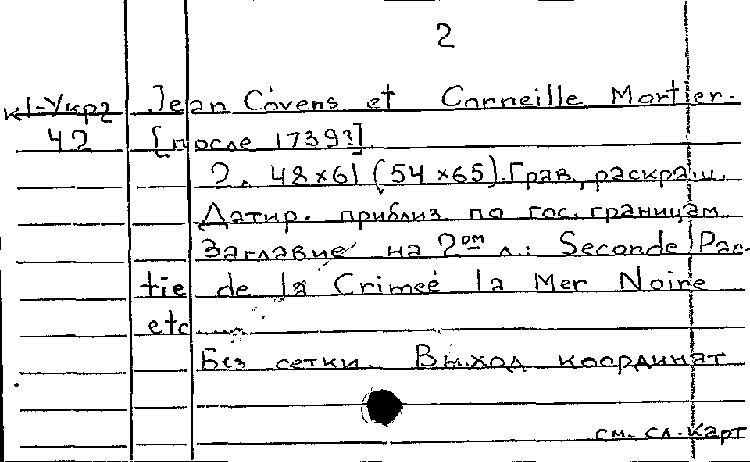 2
К1-Укр2 Jean Cóvens et Corneille Mortier.
42 [после 1739?]
2. 48×61 (54×65). Грав., раскраш.
Датир. приблиз по гос. границам
Заглавие на 2ом л.: Seconde Par-
tie de la Crimeé la Mer Noire
etc
Без сетки. Выход координат
см. сл. карт